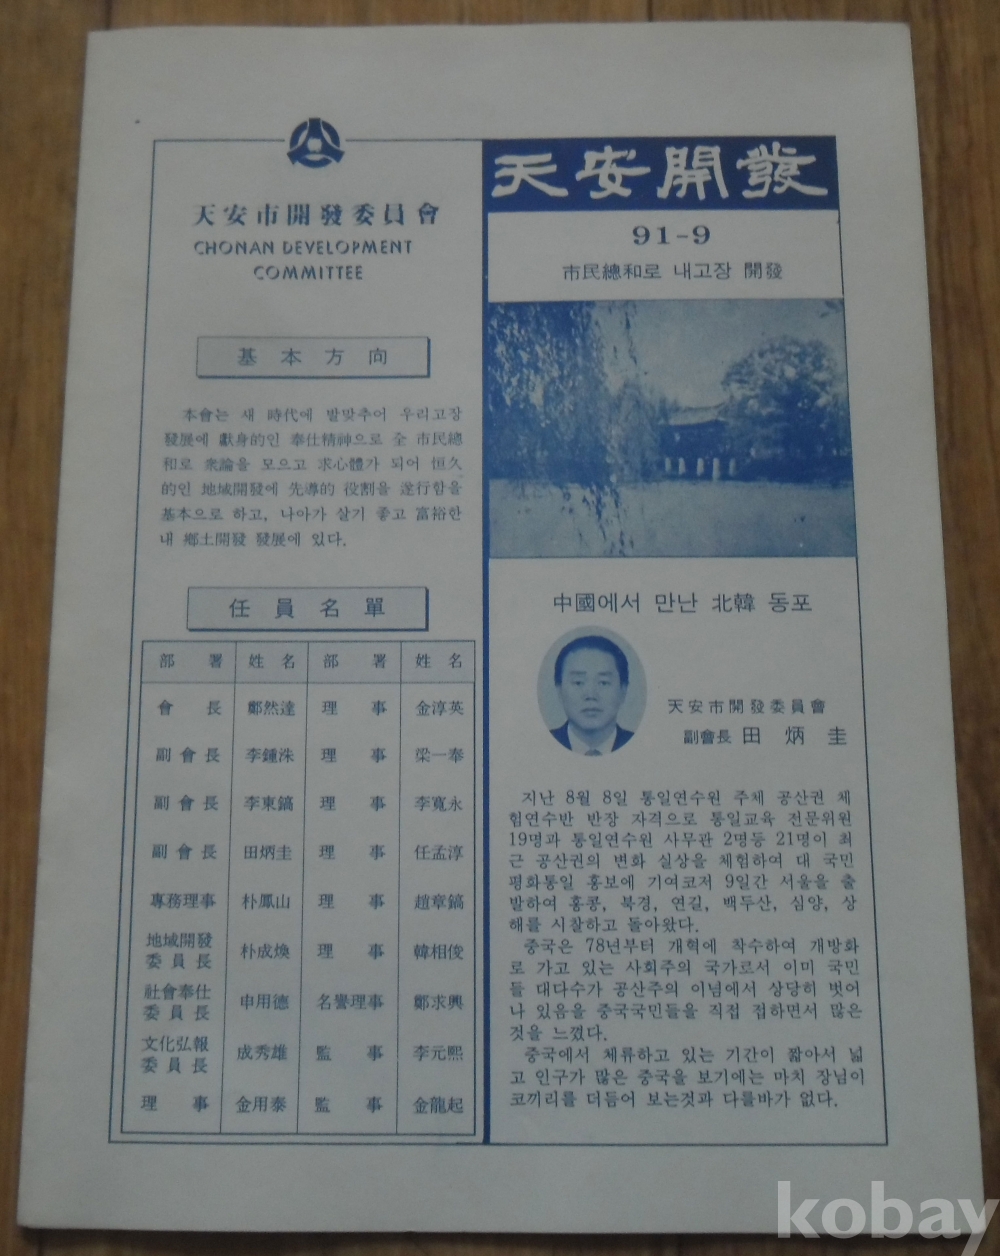 天安市開發委員會
CHONAN DEVELOPMENT
COMMITTEE
基本方向
本會는 새 時代에 발맞추어 우리고장
發展에 獻身的인 奉仕精神으로 全 市民總
和로 衆論을 모으고 求心體가 되어 恒久
的인 地域開發에 先導的 役割을 遂行함을
基本으로 하고, 나아가 살기 좋고 富裕한
내 鄕土開發 發展에 있다.
任員名單
部署 姓名 部署 姓名
會長 鄭然達 理事 金淳英
副會長 李鍾洙 理事 梁一奉
副會長 李東鎬 理事 李寬永
副會長 田炳圭 理事 任孟淳
專務理事 朴鳳山 理事 趙章鎬
地域開發
委員長 朴成煥 理事 韓相俊
社會奉仕
委員長 申用德 名譽理事 鄭求興
文化弘報
委員長 成秀雄 監事 李元熙
理事 金用泰 監事 金龍起
天安開發
91-9
市民總和로 내고장 開發
中國에서 만난 北韓 동포
天安市開發委員會
副會長 田炳圭
지난 8월 8일 통일연수원 주체 공산권 체
험연수반 반장 자격으로 통일교육 전문위원
19명과 통일연수원 사무관 2명등 21명이 최
근 공산권의 변화 실상을 체험하여 대 국민
평화통일 홍보에 기여코저 9일간 서울을 출
발하여 홍콩, 북경, 연길, 백두산, 심양, 상
해를 시찰하고 돌아왔다.
중국은 78년부터 개혁에 착수하여 개방화
로 가고 있는 사회주의 국가로서 이미 국민
들 대다수가 공산주의 이념에서 상당히 벗어
나 있음을 중국국민들을 직접 접하면서 많은
것을 느꼈다.
중국에서 체류하고 있는 기간이 짧아서 넓
고 인구가 많은 중국을 보기에는 마치 장님이
코끼리를 더듬어 보는것과 다를바가 없다.
kobay